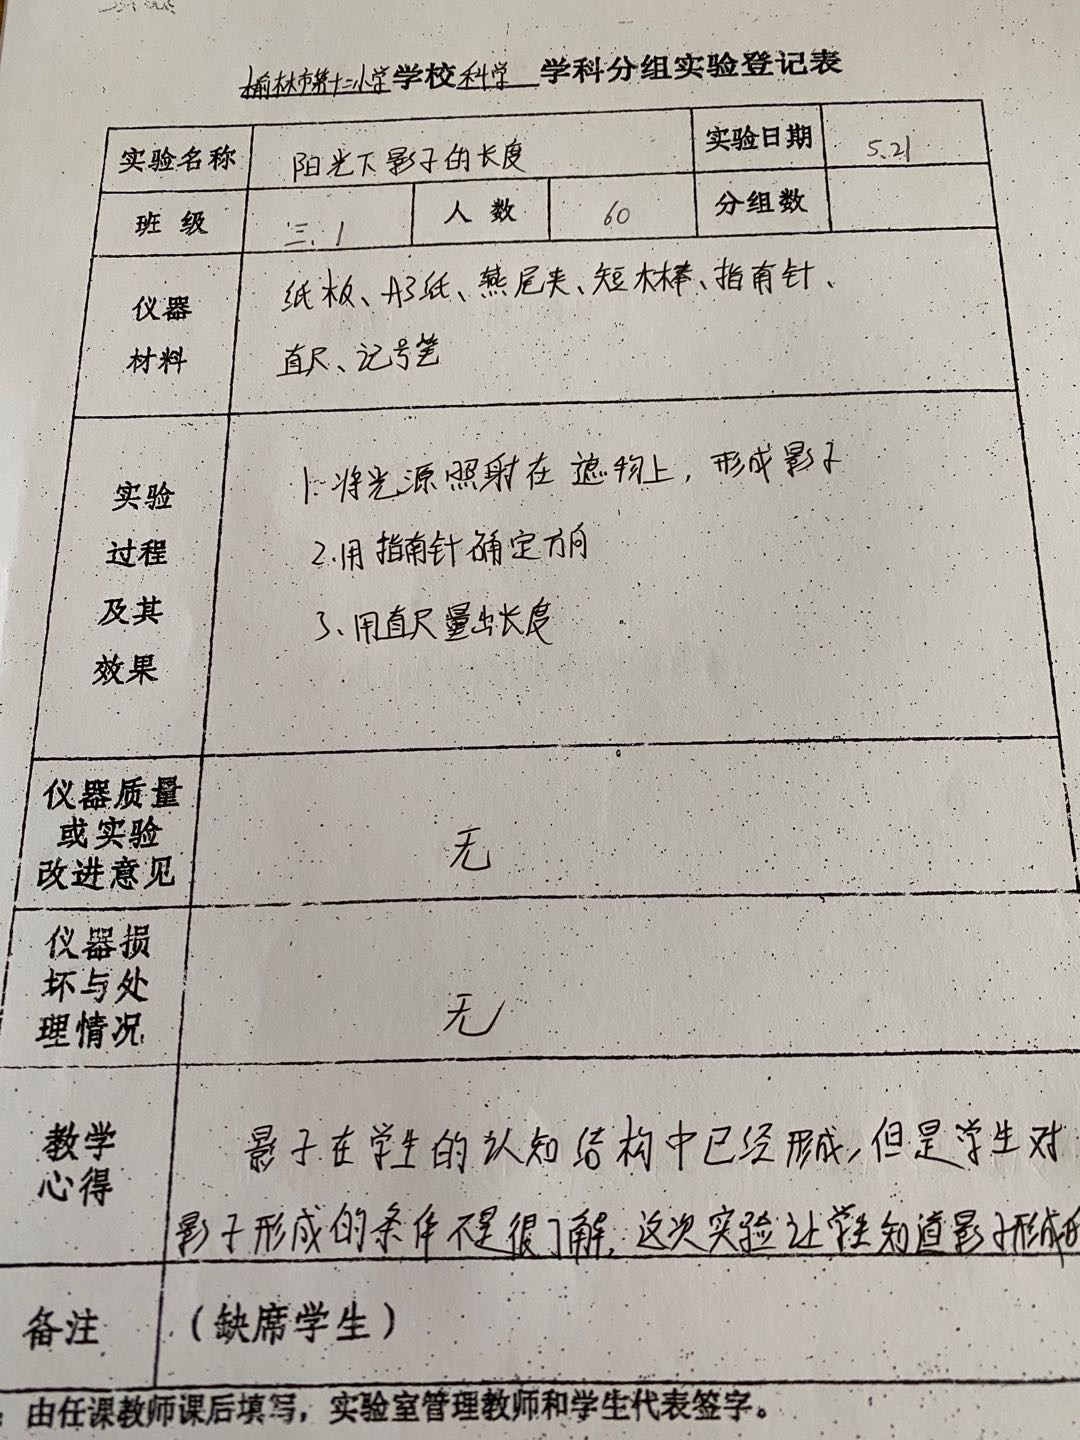 榆林市第十二小学学校科学 学科分组实验登记表
实验名称 阳光下影子的长度 实验日期 5.21
班级 三.1 人数 60 分组数
仪器材料 纸板、A3纸、燕尾夹、短木棒、指南针、
直尺、记号笔
实验过程及其效果
1.将光源照射在遮物上，形成影子
2.用指南针确定方向
3、用直尺量出长度
仪器质量或实验改进意见 无
仪器损坏与处理情况 无
教学心得 影子在学生的认知结构中已经形成，但是学生对
影子形成的条件不是很了解，这次实验让学生知道影子形成的
备注 （缺席学生）
：由任课教师课后填写，实验室管理教师和学生代表签字。